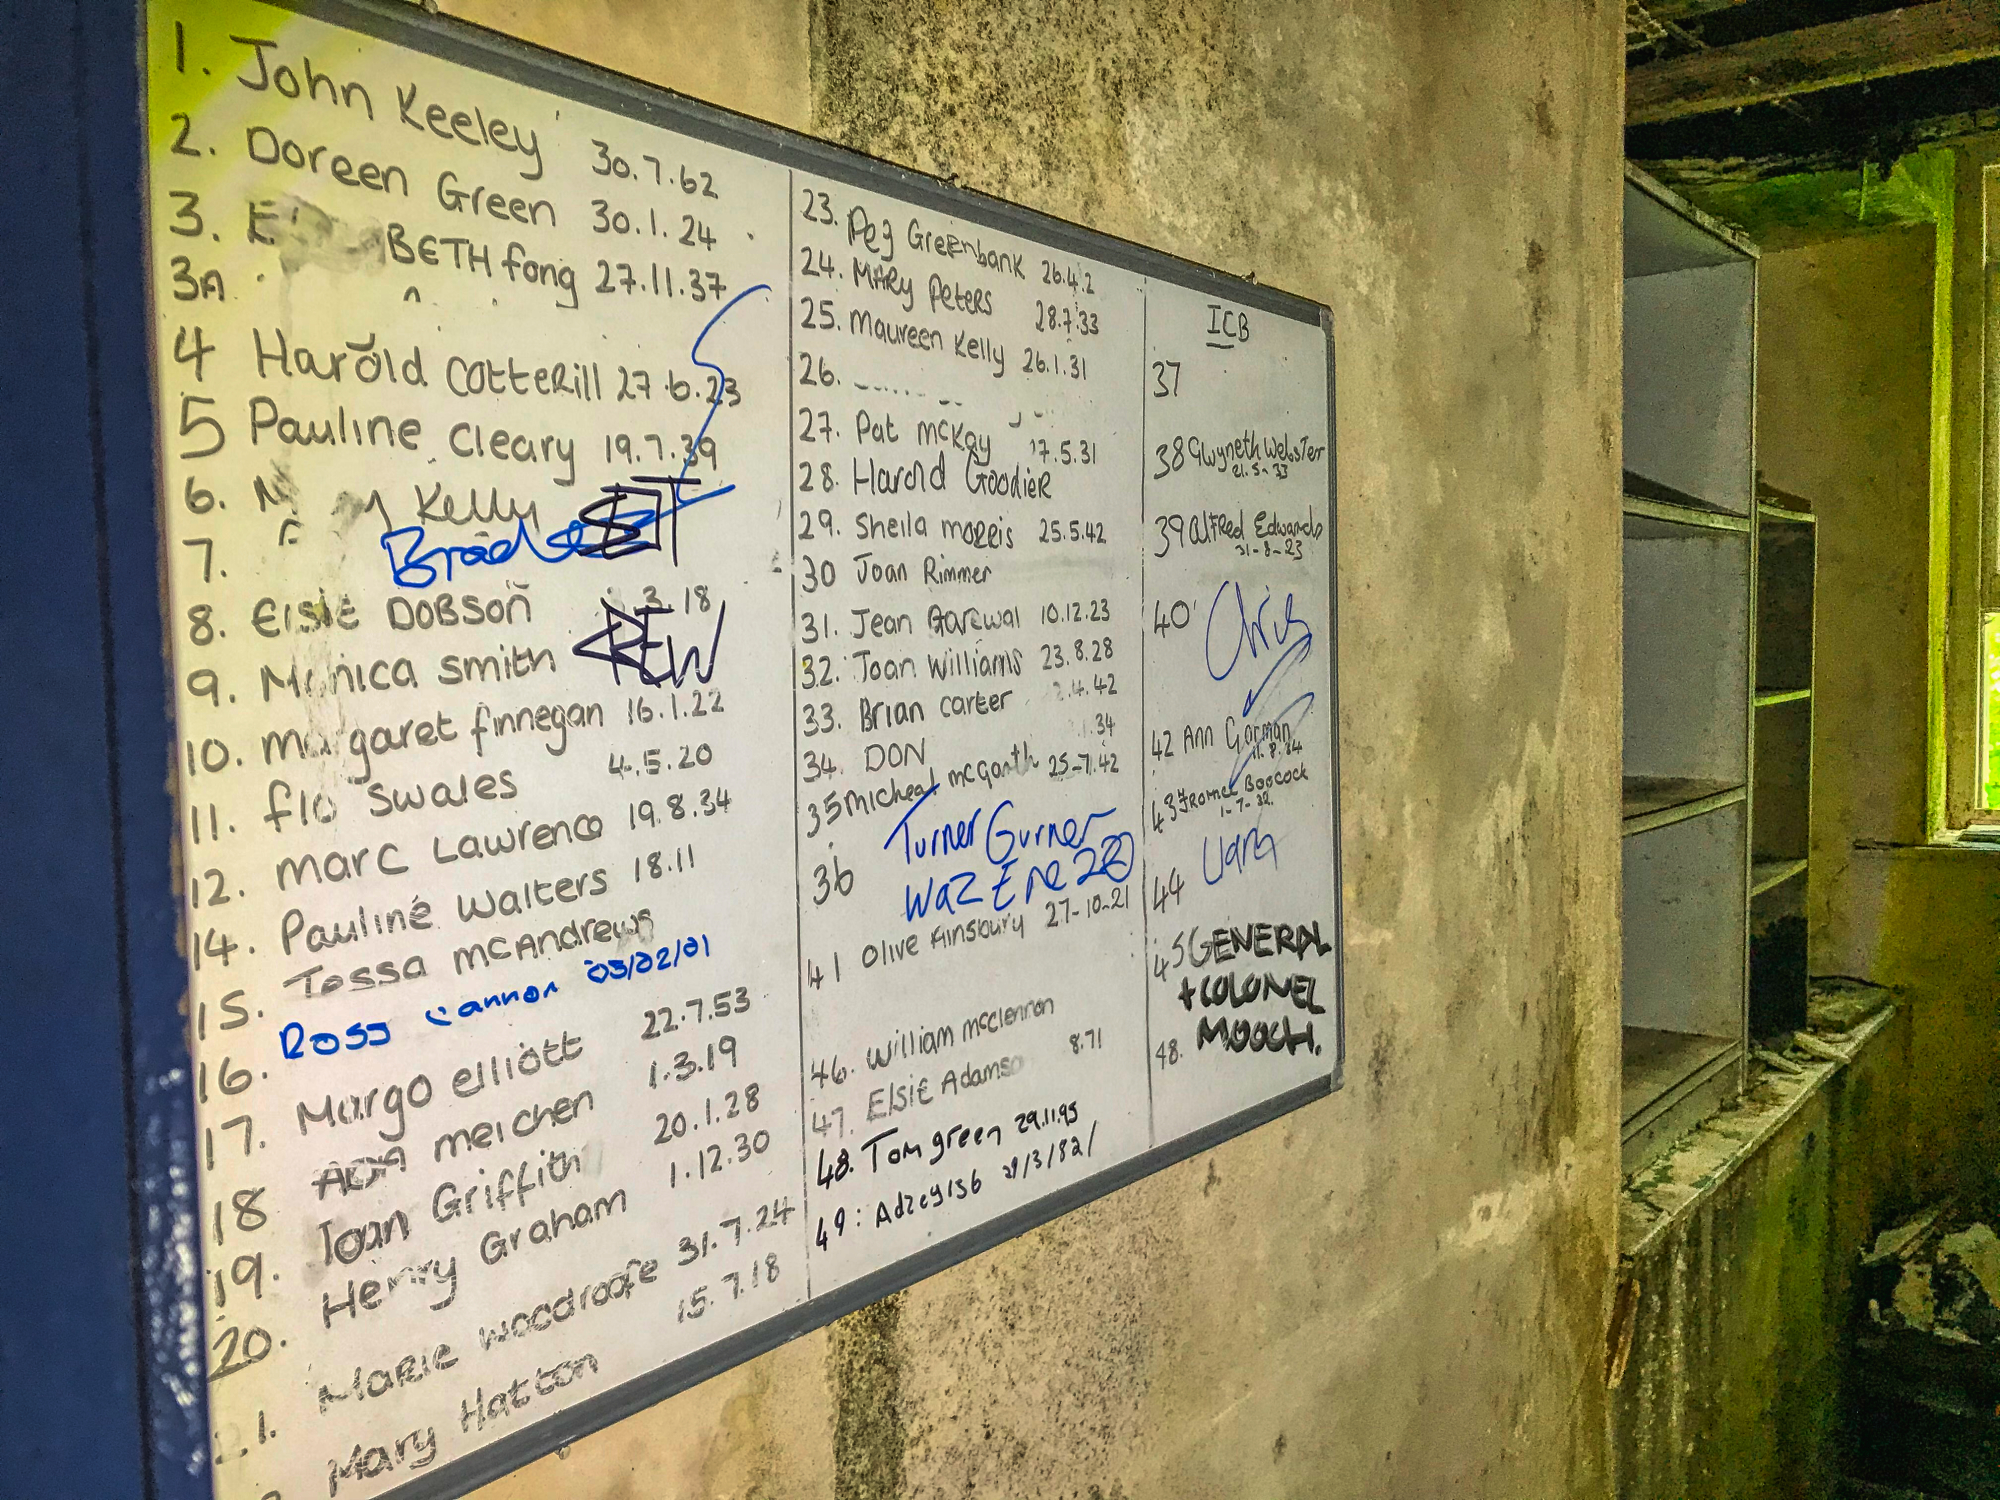 1. John Keeley 30.7.62
2. Doreen Green 30.1.24
3. BETH fong 27.11.37
3A
4 Harold Cotterill 27.6.23
5 Pauline Cleary 19.7.39
6. Kelly
7.
8. Elsie Dobson 3.18
9. Monica Smith
10. Margaret finnegan 16.1.22
11. flo Swales 4.5.20
12. Marc Lawrence 19.8.34
14. Pauline Walters 18.11
15. Tessa McAndrews
Ross 03/02/01
16. Margo elliott 22.7.53
17. ADA meichen 1.3.19
18 Joan Griffith 20.1.28
19. Henry Graham 1.12.30
20. Marie Woodroofe 31.7.24
21. Mary Hatton 15.7.18
23. Peg Greenbank 26.4.2
24. MARY Peters 28.7.33
25. Maureen Kelly 26.1.31
26.
27. Pat McKay 7.5.31
28. Harold Goodier
29. Sheila morris 25.5.42
30 Joan Rimmer
31. Jean 10.12.23
32. Joan Williams 23.8.28
33. Brian carter 2.4.42
34. DON .34
35 Micheal mcGarth 25-7.42
36 Turner Gurner
41 Olive Ainsbury 27-10-21
46. William McClennon
47. Elsie Adams 8.71
48. Tom green 29.11.95
49: 29/3/82/
ICB
37
38 Gwyneth Webster
21.5.33
39 Alfred Edwards
31-8-23
40 Chris
42 Ann Gorman
11.8.84
43 Boocock
1-7-32
44
45 GENERAL
+ COLONEL
MOOCH.
48.